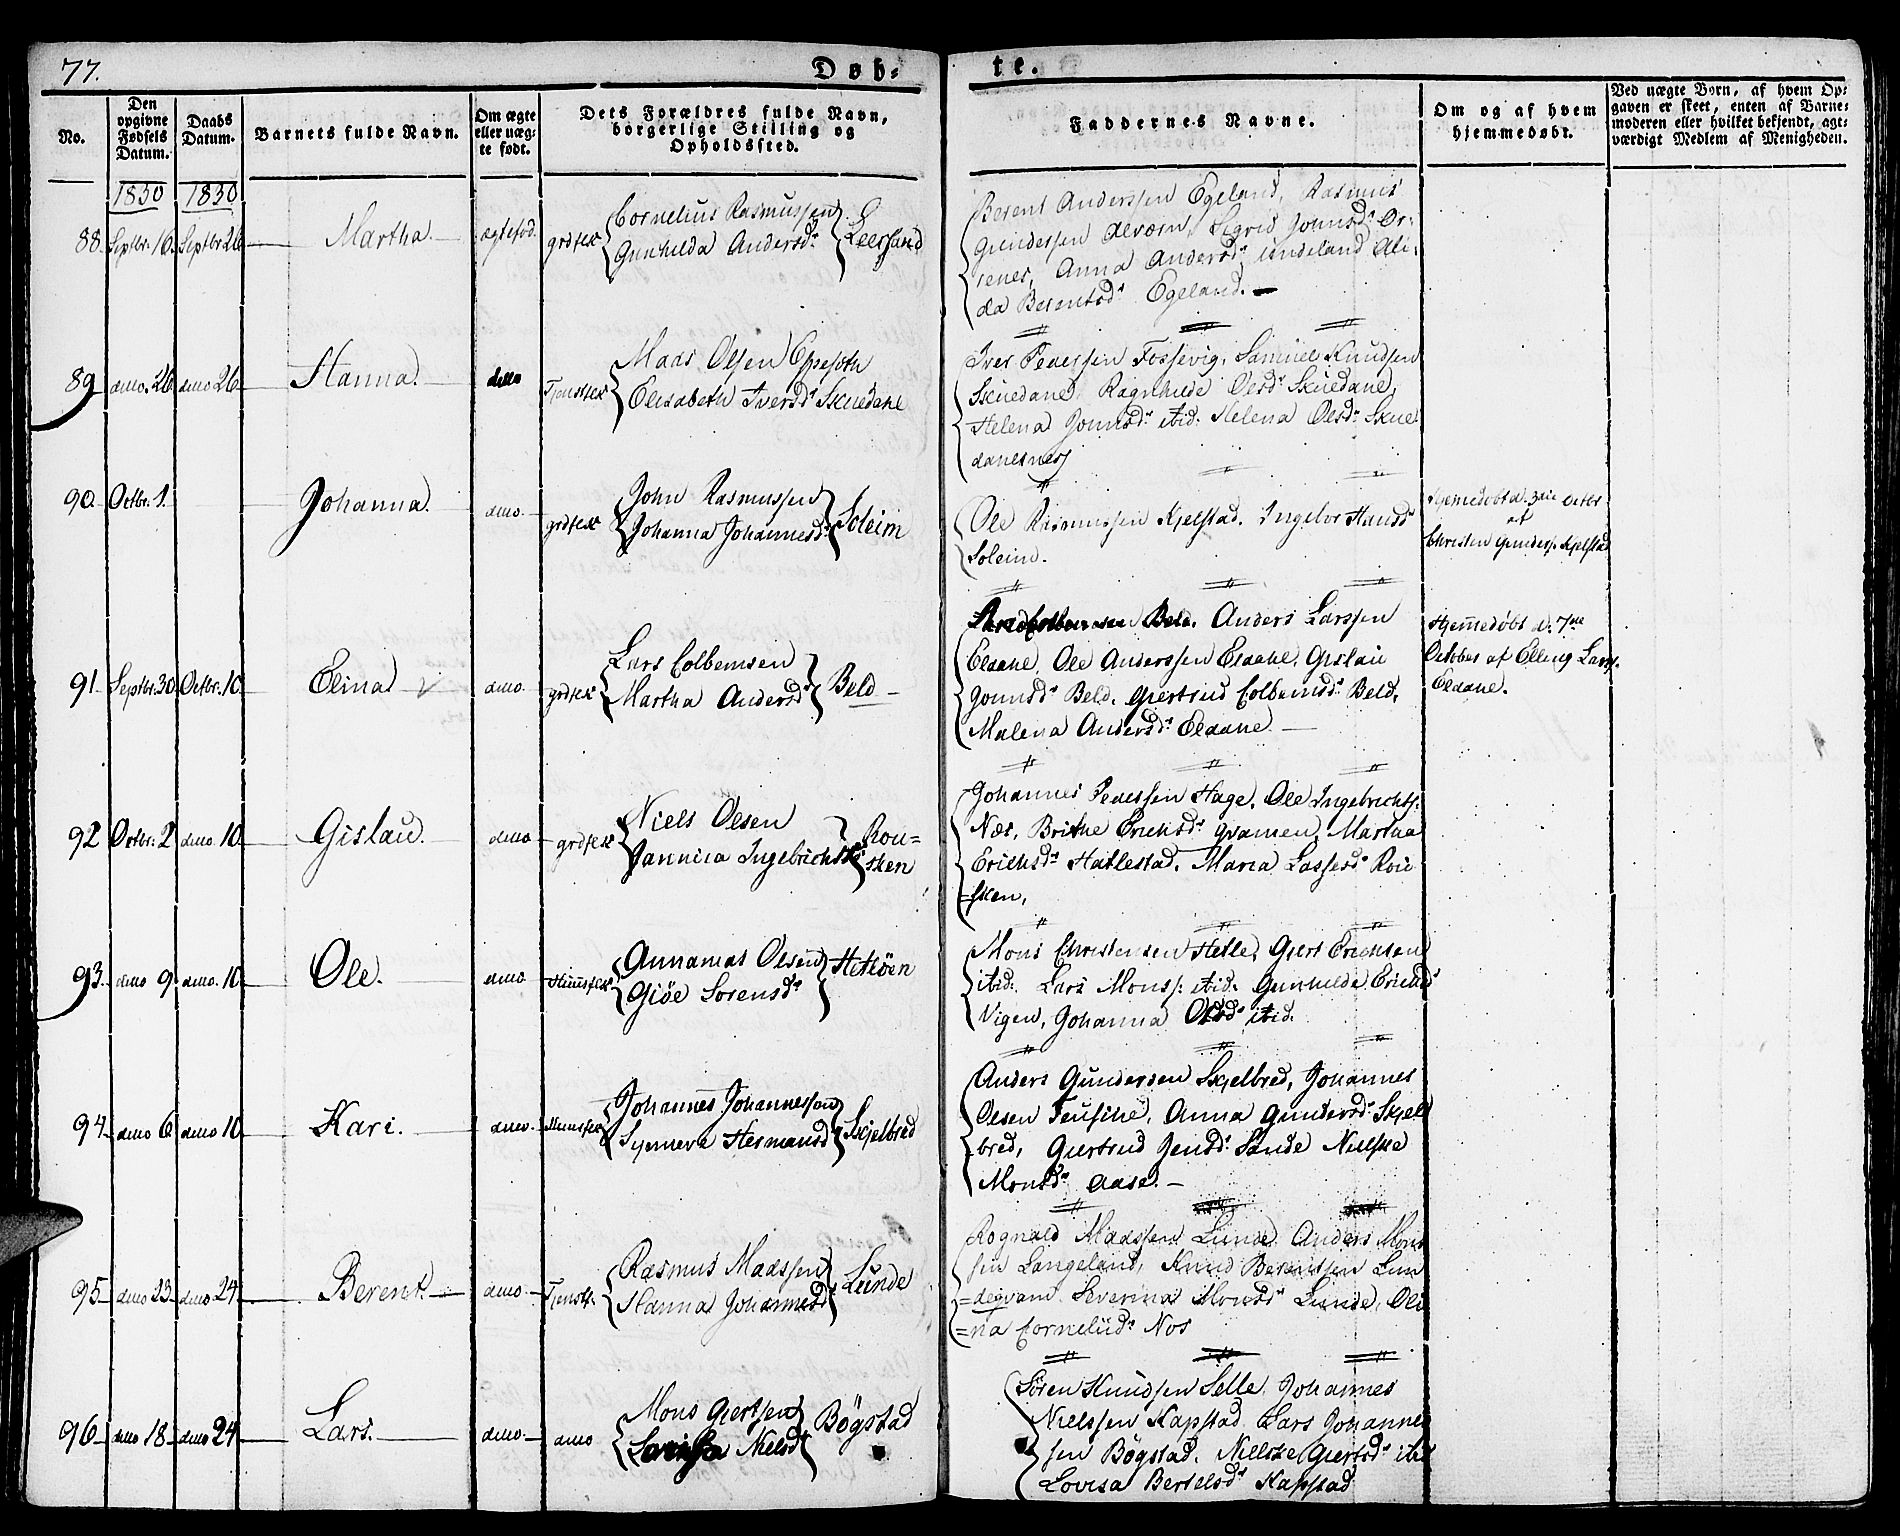 77.
Døb=
te.
No.
Den
opgivne
Fødsels
Datum.
Daabs
Datum.
Barnets fulde Navn.
Om ægte
eller uæg=
te født.
Dets Forældres fulde Navn,
borgerlige Stilling og
Opholdssted.
Faddernes Navne.
Om og af hvem
hjemmedøbt.
Ved uægte Børn, af hvem Op=
gaven er skeet, enten af Barne=
moderen eller hvilket bekjendt, agt=
værdigt Medlem af Menigheden.
1830 1830
88. Septbr. 16. Septbr 26 Martha. ægtefød. grdfex
Cornelius Rasmussen
Gunhilda Andersd.
Leersand
Berent Anderssen Egeland, Rasmus
Gundersen Alværn, Sigrid Johnsd
Anna Andersd Undeland Ali=
da Berentsd Egeland.
89 dito. 26 dito 26 Hanna. ditto
Maas Olsen
Elisabeth Iversd Skuedane
Iver Pedersen Fossevig, Samuel Knudsen
Skuedane, Ragnhilde Olsd Skuedane,
Helena Johnsd. ibid. Helena Olsd. Skue
danesnes
90. Octbr. 1. Johanna. dito. grdfex
John Rasmussen
Johanna Johannesd.
Soleim
Ole Rasmussen Kjelstad. Ingebor Hansd
Soleim.
Hjemedøbt d. 3die Octbr
af
Christen Gunders. Kjelstad
91 Septbr. 30 Octbr. 10 Elina dito. grdfex
Lars Colbensen
Martha Andersd
Beld
Beld. Anders Larssen
Eldane, Ole Anderssen Eldane, Gislau
Johnsd Beld. Giertrud Colbensd. Beld,
Malena Andersd. Eldane
Hjemedøbt d. 7de
October af Elling Larss.
Eldane.
92 Octbr. 2 dito. 10. Gislau. dito grdfex
Niels Olsen
Jannica Ingebrichtsd
Rou=
sken
Johannes Pederssen Hage, Ole Ingebrichts.
Næs, Brithe Erichsd. Qvamen, Martha
Erichsd. Hatlestad. Maria Lassesd Rou
=sken,
93. dito 9. dito. 10. Ole. dito
Annanias Olsen
Giøe Sørensd.
Mons Christensen Helle, Giert Erichsen
ibid. Lars Monss. ibid. Gunhilde Erichsd
Vigen, Johanna Olsd ibid.
94. dito 6 dito 10. Kari. dito.
Johannes Johannessen
Synneva Hermansd
Skjelbred
Anders Gundersen Skjelbred, Johannes
Olsen Anna Gundersd. Skjel
bred, Giertrud Jensd. Sande Nielske
Monsd. Aase.
95. dito 23. dito 24. Berent. dito.
Rasmus Maassen
Hanna Johannesd
Lunde
Rognald Maassen Lunde Anders Mons
sen Langeland, Knud Berentsen Lun
=deqvam Severina Monsd Lunde, Oli
=na Corneliid. Nos
96. dito 18. dito 24. Lars. dito. dito
Mons Giertsen
Nielsd
Bøgstad
Søren Knudsen Selle. Johannes
Nielssen Kapstad. Lars Johannes
sen Bøgstad. Nielske Giertsd ibid
Lovisa Bertelsd. Kapstad